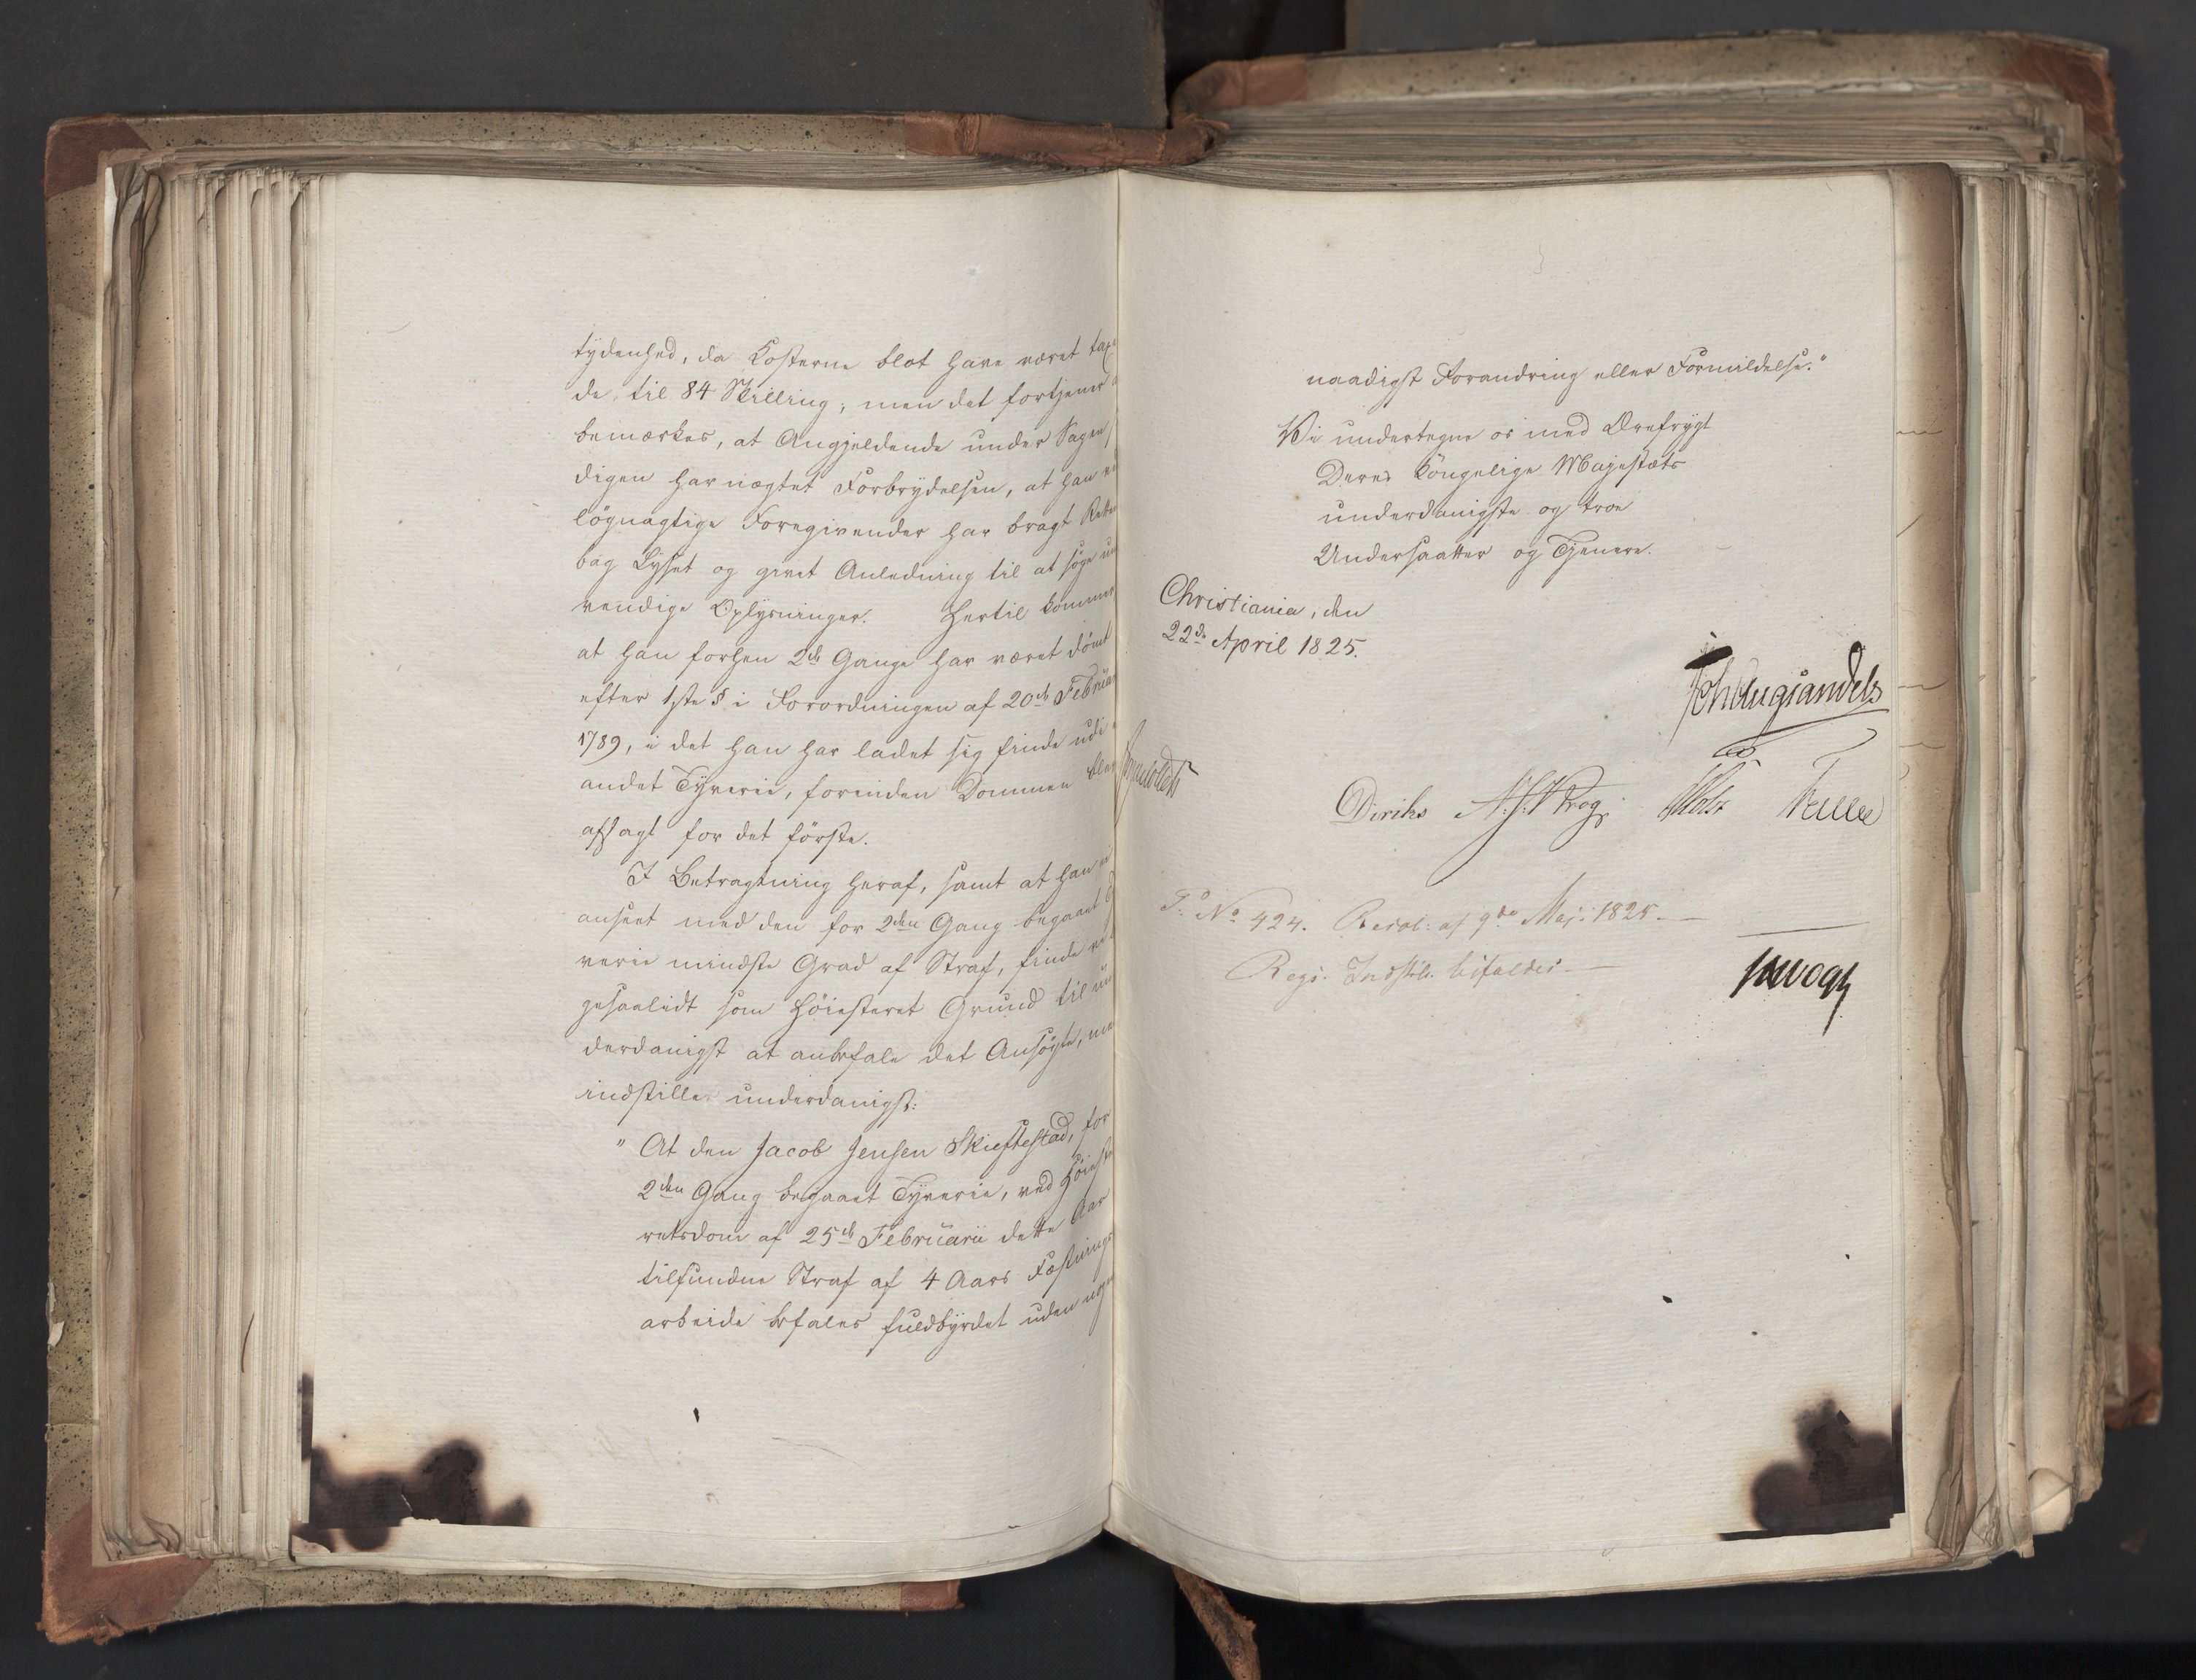 tydenhed, da Kosterne blot have været taxe
de til 84 Skilling; men det fortjener
bemærkes, at Angjeldende under Sagen
digen har nægtet Forbrydelsen, at han
løgnagtige Foregivender har bragt Rette
bag Lyset og givet Anledning til at søge
vendige Oplysninger. Hertil kommer
at han forhen 2de Gange har været dömt
efter 1ste § i Forordningen af 20de Februar
1789, i det han har ladet sig finde udi
andet Tyverie, forinden Dommen blev
afsagt for det förste.
I Betragtning heraf, samt at han
anseet med den for 2den Gang begaaet
verie mindste Grad af Straf, finde
gesaalidt som Höiesteret Grund til un
derdanigst at anbefale det Ansøgte, men
indstiller underdanigst:
" At den Jacob Jensen Skieftestad, for
2den Gang begaaet Tyverie, ved Höieste
retsdom af 25de Februarii dette Aar
tilfundne Straf af 4 Aars Fæstnings
arbeide befales fuldbyrdet uden nogen
naadigst Forandring eller Formildelse."
Vi undertegne os med Ærefrygt
Deres Kongelige Majestæts
underdanigste og troe
Undersaatter og Tjenere.
Christiania, den
22de April 1825.
Diriks Krog Holst
P: No 424. Resol: af 9de Maji 1825.
Regj. Indstil. bifaldes.